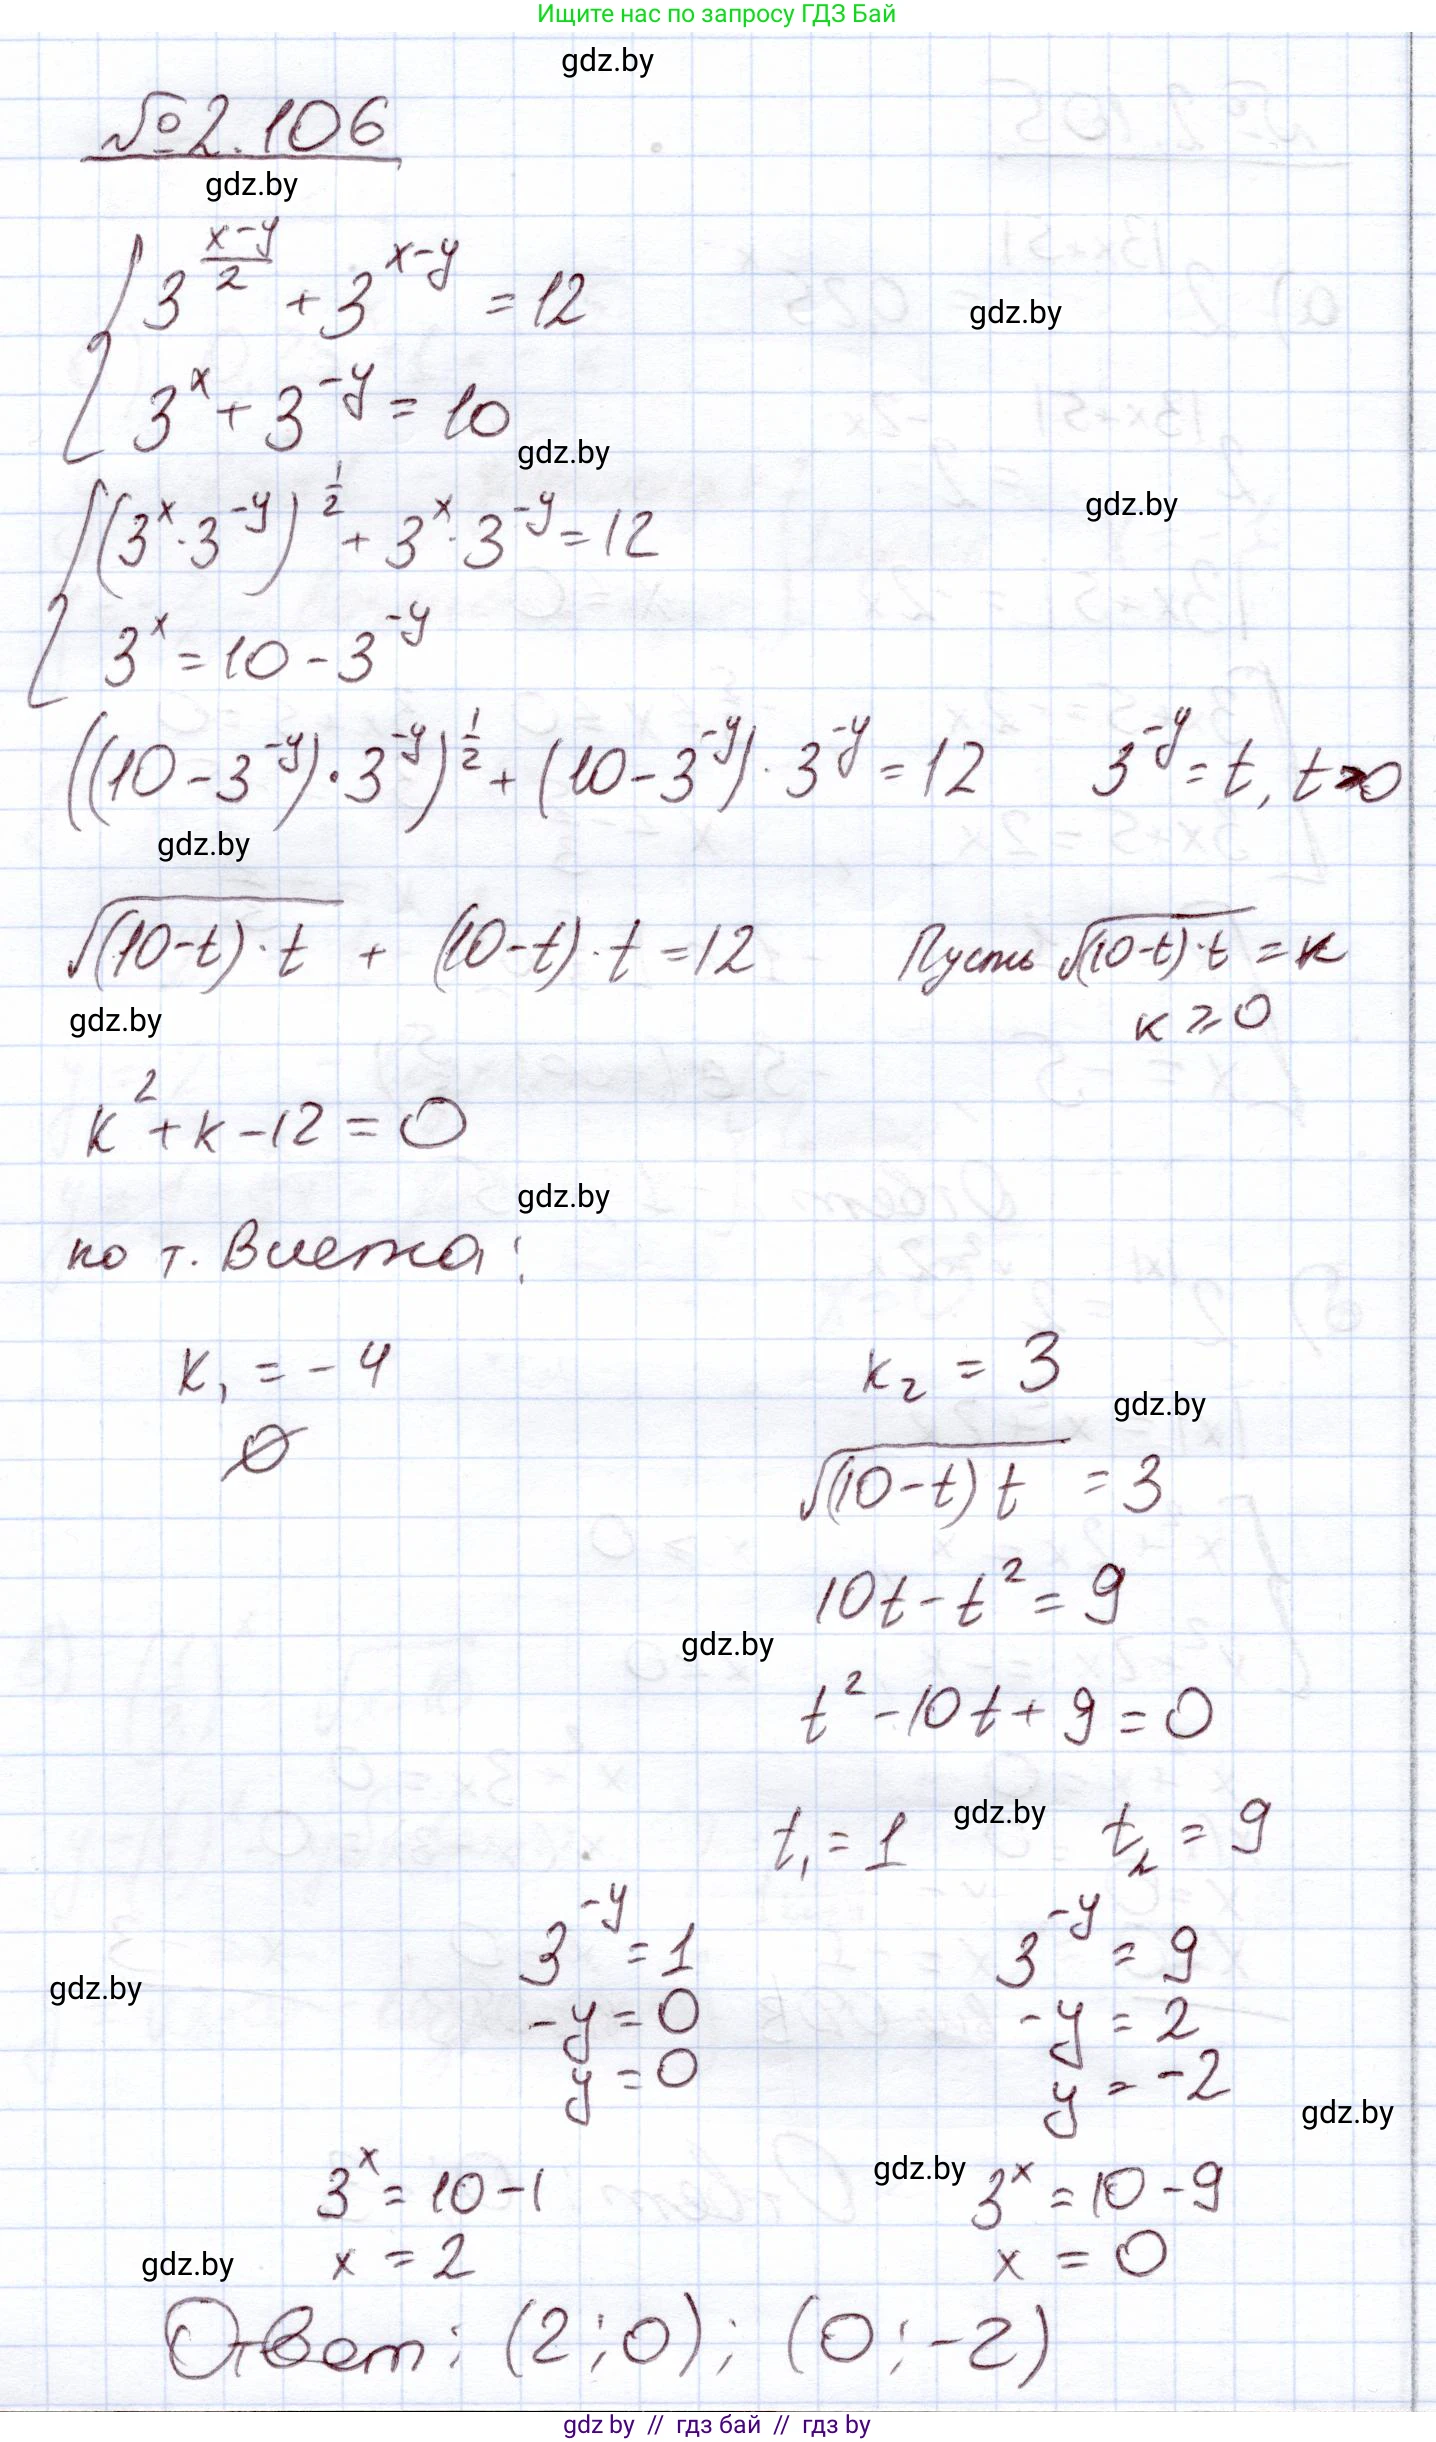 Ищите нас по запросу ГДЗ Бай
gdz.by
№2.106
gdz.by
{ 3^((x-y)/2) + 3^(x-y) = 12
gdz.by
3^x + 3^(-y) = 10
gdz.by
{ (3^x · 3^(-y))^(1/2) + 3^x · 3^(-y) = 12
gdz.by
3^x = 10 - 3^(-y)
((10 - 3^(-y)) · 3^(-y))^(1/2) + (10 - 3^(-y)) · 3^(-y) = 12 3^(-y) = t, t > 0
gdz.by
√((10-t) · t) + (10-t) · t = 12 Пусть √((10-t) · t) = k
gdz.by k ≥ 0
k² + k - 12 = 0
gdz.by
по т. Виета:
k₁ = -4 k₂ = 3
gdz.by
∅ √((10-t) t) = 3
10t - t² = 9
gdz.by
t² - 10t + 9 = 0
gdz.by
t₁ = 1 t₂ = 9
3^(-y) = 1 3^(-y) = 9
gdz.by
-y = 0 -y = 2
y = 0 y = -2
gdz.by
gdz.by
3^x = 10 - 1 3^x = 10 - 9
gdz.by
x = 2 x = 0
Ответ: (2; 0); (0; -2)
gdz by // гдз бай // гдз by